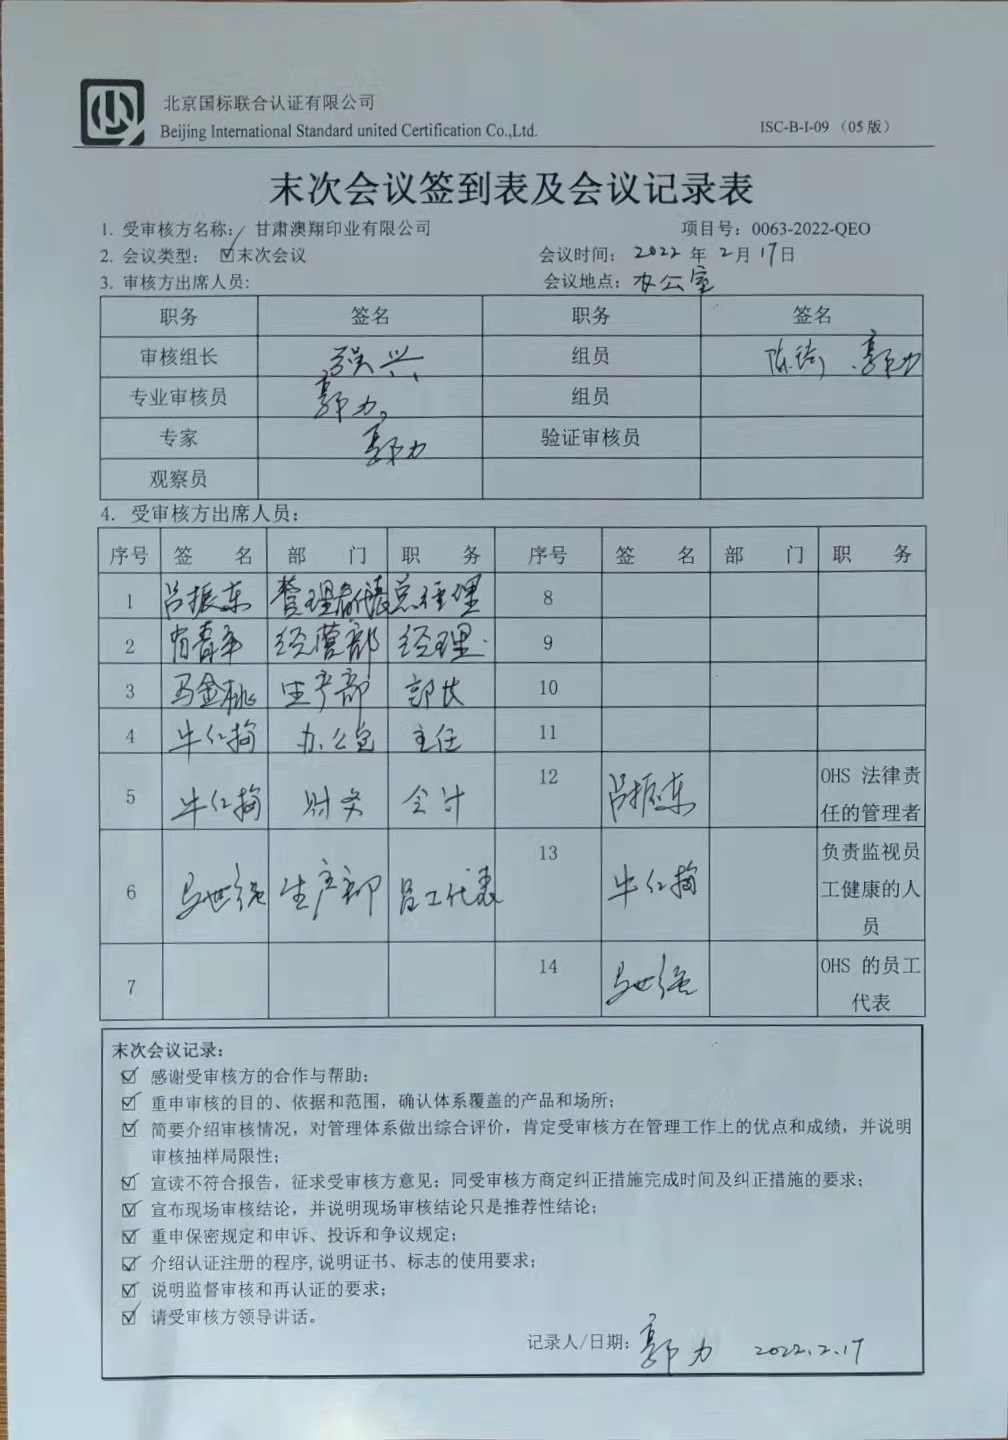 北京国标联合认证有限公司
Beijing International Standard united Certification Co.,Ltd.
ISC-B-I-09 (05 版)
末次会议签到表及会议记录表
1. 受审核方名称: 甘肃澳翔印业有限公司 项目号: 0063-2022-QEO
2. 会议类型: ☑末次会议 会议时间: 2022 年 2 月 17 日
3. 审核方出席人员: 会议地点: 办公室
职务 签名 职务 签名
审核组长 强兴 组员 郭力
专业审核员 郭力 组员
专家 郭力 验证审核员
观察员
4. 受审核方出席人员:
序号 签 名 部 门 职 务 序号 签 名 部 门 职 务
1 吕振东 管理者代表 总经理 8
2 经营部 经理 9
3 马金桃 生产部 部长 10
4 牛仁梅 办公室 主任 11
5 牛仁梅 财务 会计 12 吕振东 OHS 法律责
任的管理者
6 马世强 生产部 员工代表 13 牛仁梅 负责监视员
工健康的人
员
7 14 马世强 OHS 的员工
代表
末次会议记录:
☑ 感谢受审核方的合作与帮助;
☑ 重申审核的目的、依据和范围，确认体系覆盖的产品和场所;
☑ 简要介绍审核情况，对管理体系做出综合评价，肯定受审核方在管理工作上的优点和成绩，并说明
审核抽样局限性;
☑ 宣读不符合报告，征求受审核方意见；同受审核方商定纠正措施完成时间及纠正措施的要求;
☑ 宣布现场审核结论，并说明现场审核结论只是推荐性结论;
☑ 重申保密规定和申诉、投诉和争议规定;
☑ 介绍认证注册的程序,说明证书、标志的使用要求;
☑ 说明监督审核和再认证的要求;
☑ 请受审核方领导讲话。
记录人/日期: 郭力 2022.2.17